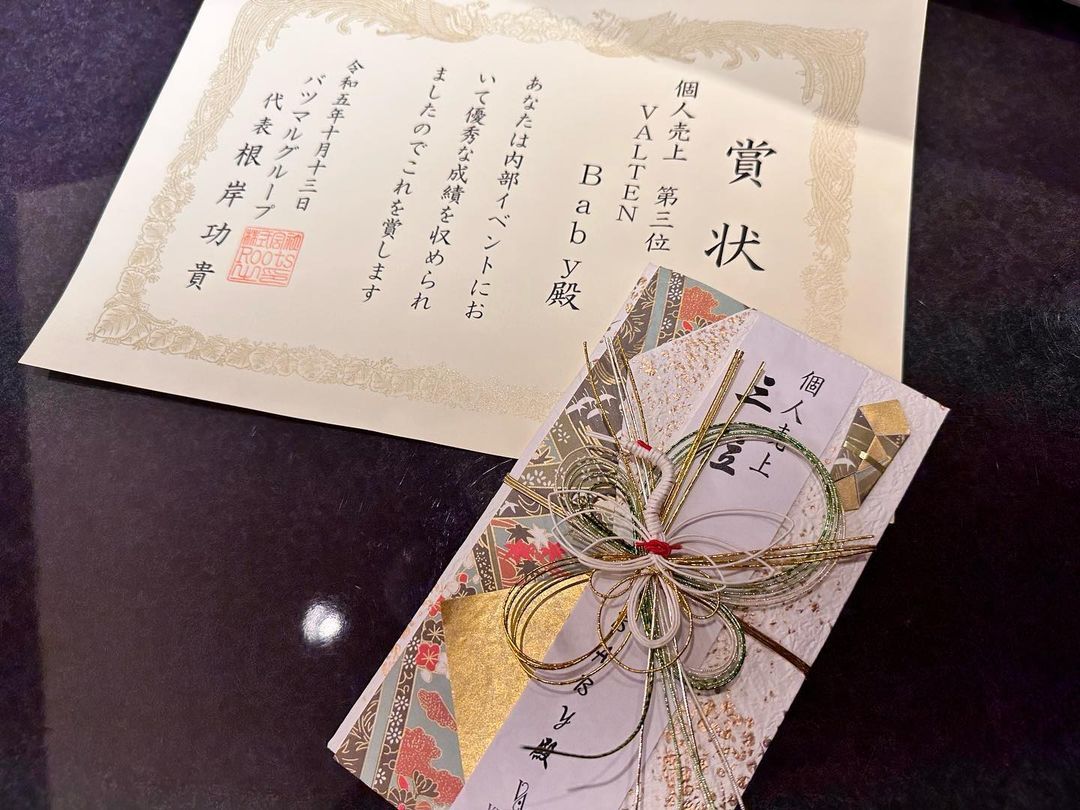 賞状
個人売上 第三位
VALTEN
Baby殿
あなたは内部イベントにお
いて優秀な成績を収められ
ましたのでこれを賞します
令和五年十月十三日
バツマルグループ
代表根岸功貴
株式会社
Roots
個人売上
三位
BABY殿